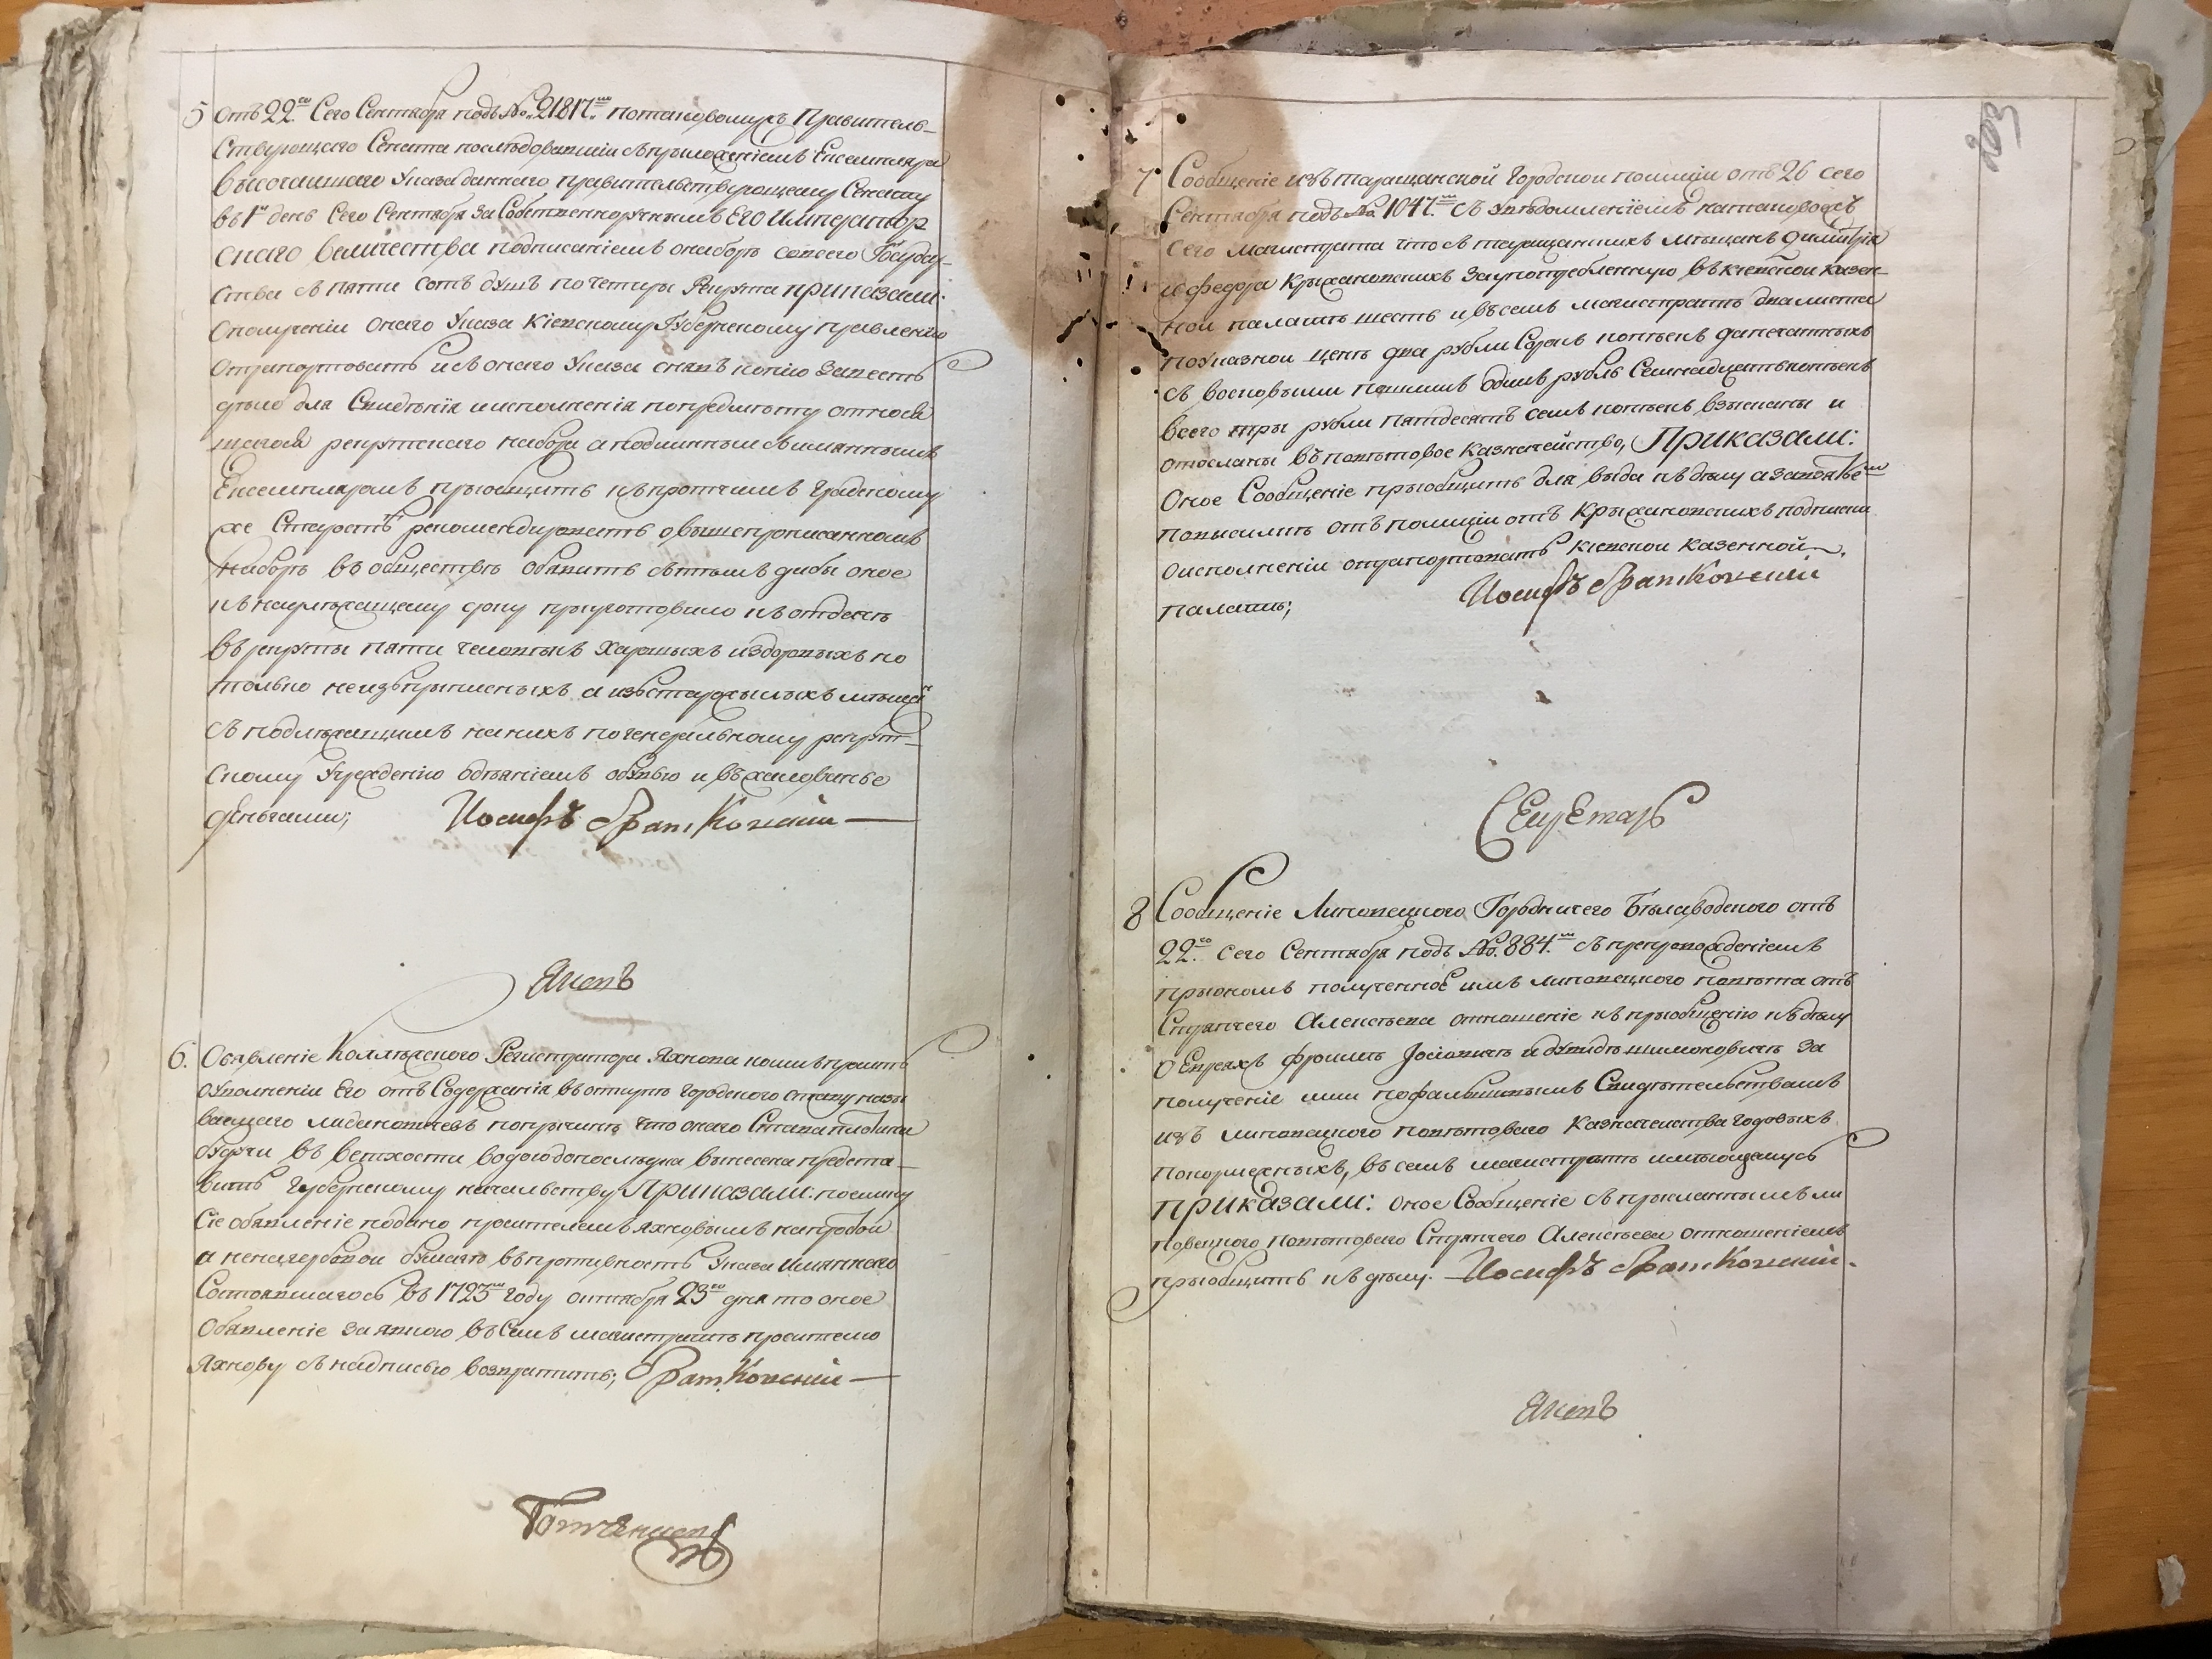 5 отъ 22.го Сего Сентября подъ №. 21817.мъ потаковомужъ Правитель-
ствующаго Сената последованіи съ приложеніемъ Екземпляра
высочаишаго Указа даннаго правительствующему Сенату
въ 1й день Сего Сентября за Собственноручнымъ Его Император
скаго Величества подписаніемъ онаборѣ совсего Государ-
ства съ пяти сотъ душъ по четыри Рекрута приказали:
ополученіи онаго Указа Кіевскому Губернскому правленію
отрапортовать и съ онаго Указа снявъ копію завесть
дѣло для Свидѣнія и исполненія попредмѣту относя
щагося рекрутскаго набора а подлинныи съ имяннымъ
Екземпляромъ пріобщить къ протчимъ Градскому
же Старостѣ рекомендировать овышепрописанномъ
наборѣ въ обществѣ объявить съ тѣмъ дабы оное
къ надлежащему сроку пріуготовило къ отдачѣ
въ рекруты пяти человѣкъ харошыхъ издоровыхъ но
только неизъ пришлыхъ а изъ старожилыхъ мѣщанъ
съ подлежащимъ на нихъ по генеральному рекрут-
скому Учрежденію одѣяніемъ обувью и въ жалованье
деньгами; Иосифъ Братковскіи
Яковъ
6. Объявленіе Коллежского Регистратора Яхнова коимъ проситъ
оуволненіи Его отъ Содержанія въ откупѣ городского ставу назы
ваемаго попричинѣ что онаго Става плотина
будучи въ ветхости водою допослѣдка вынесена предста-
вить Губернскому начальству Приказали: поелику
Сіе объявленіе подано просителемъ Яхновымъ на простой
а ненагербовой бумаге въ противность Указа имяннаго
Состоявшагось въ 1723мъ году октября 23го дня то оное
Объявленіе за явкою въ Семъ магистратѣ просителю
Яхнову съ надписью возвратить; Братковскіи
203
7 Сообщеніе изъ таращанской городской полиціи отъ 26 сего
Сентября подъ №. 1047.мъ съ Уведомленіемъ на таковоежъ
сего магистрата что съ таращанскихъ мѣщанъ Димитрія
и федора Крыжановскихъ за употребленную въ кіевской казен-
ной палатѣ шесть и въ семъ магистратѣ два листа
поуказной ценѣ два рубли Сорокъ копѣекъ да печатныхъ
съ восковыми пошлинъ одинъ рубль Семнадцать копѣекъ
всего тры рубли пятдесятъ семъ копѣекъ взысканы и
отосланы въ повѣтовое казначейство, Приказали:
Оное Сообщеніе пріобщить для выда къ дѣлу а
отъ полиціи отъ Крыжановскихъ подписки
оисполненіи отрапортовать кіевской казенной
палатѣ; Иосифъ Братковскіи
Секретарь
8 Сообщеніе Липовецкого Городничего Бѣлаводского отъ
22.го сего Сентября подъ №. 884.мъ съ препровожденіемъ
полученное имъ липовецкого повѣта отъ
Стряпчего Алексѣева отношеніе къ пріобщенію къ дѣлу
о Евреяхъ за
полученіе ими по фальшивымъ Свидѣтельствамъ
изъ липовецкого повѣтового Казначейства годовыхъ
покормежныхъ, въ семъ магистратѣ имѣющемусь
приказали: оное Сообщеніе съ присланнымъ ли
повецкого повѣтового Стряпчего Алексѣева отношеніемъ
пріобщить къ дѣлу. Иосифъ Братковскіи.
Яковъ